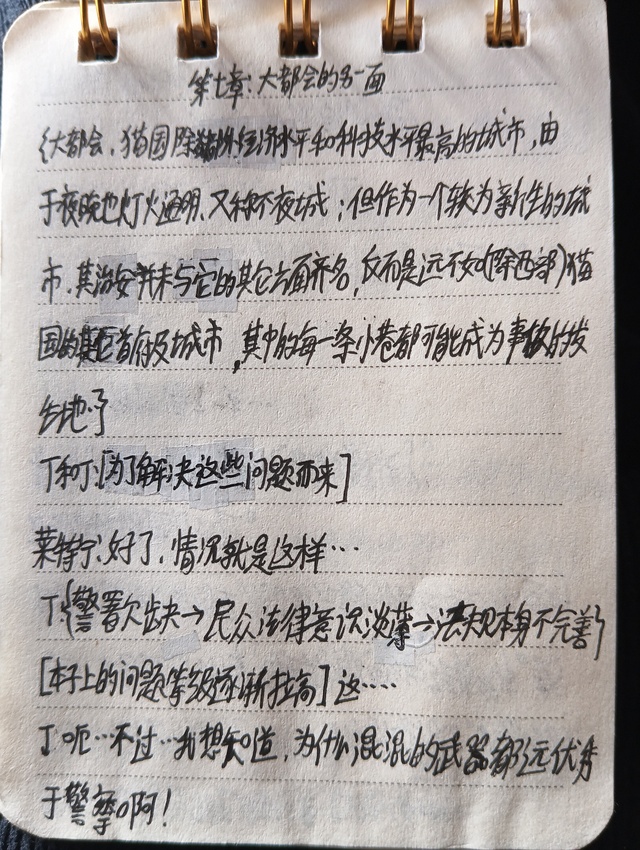 第十章：大都会的另一面
{大都会，猫国除猪州经济水平和科技水平最高的城市，由
于夜晚也灯火通明，又称不夜城；但作为一个较为新生的城
市，其治安并未与它的其它方面齐名，反而是远不如(除西部)猫
国的其它首府及城市，其中的每一条小巷都可能成为事故的发
生地。}
丁和丁：[为了解决这些问题而来]
莱特宁：好了，情况就是这样…
丁：{警署欠缺→民众法律意识淡薄→法规本身不完善}
[本子上的问题等级逐渐拉高]这……
丁：呃…不过…我想知道，为什么混混的武器都远优秀
于警察啊！